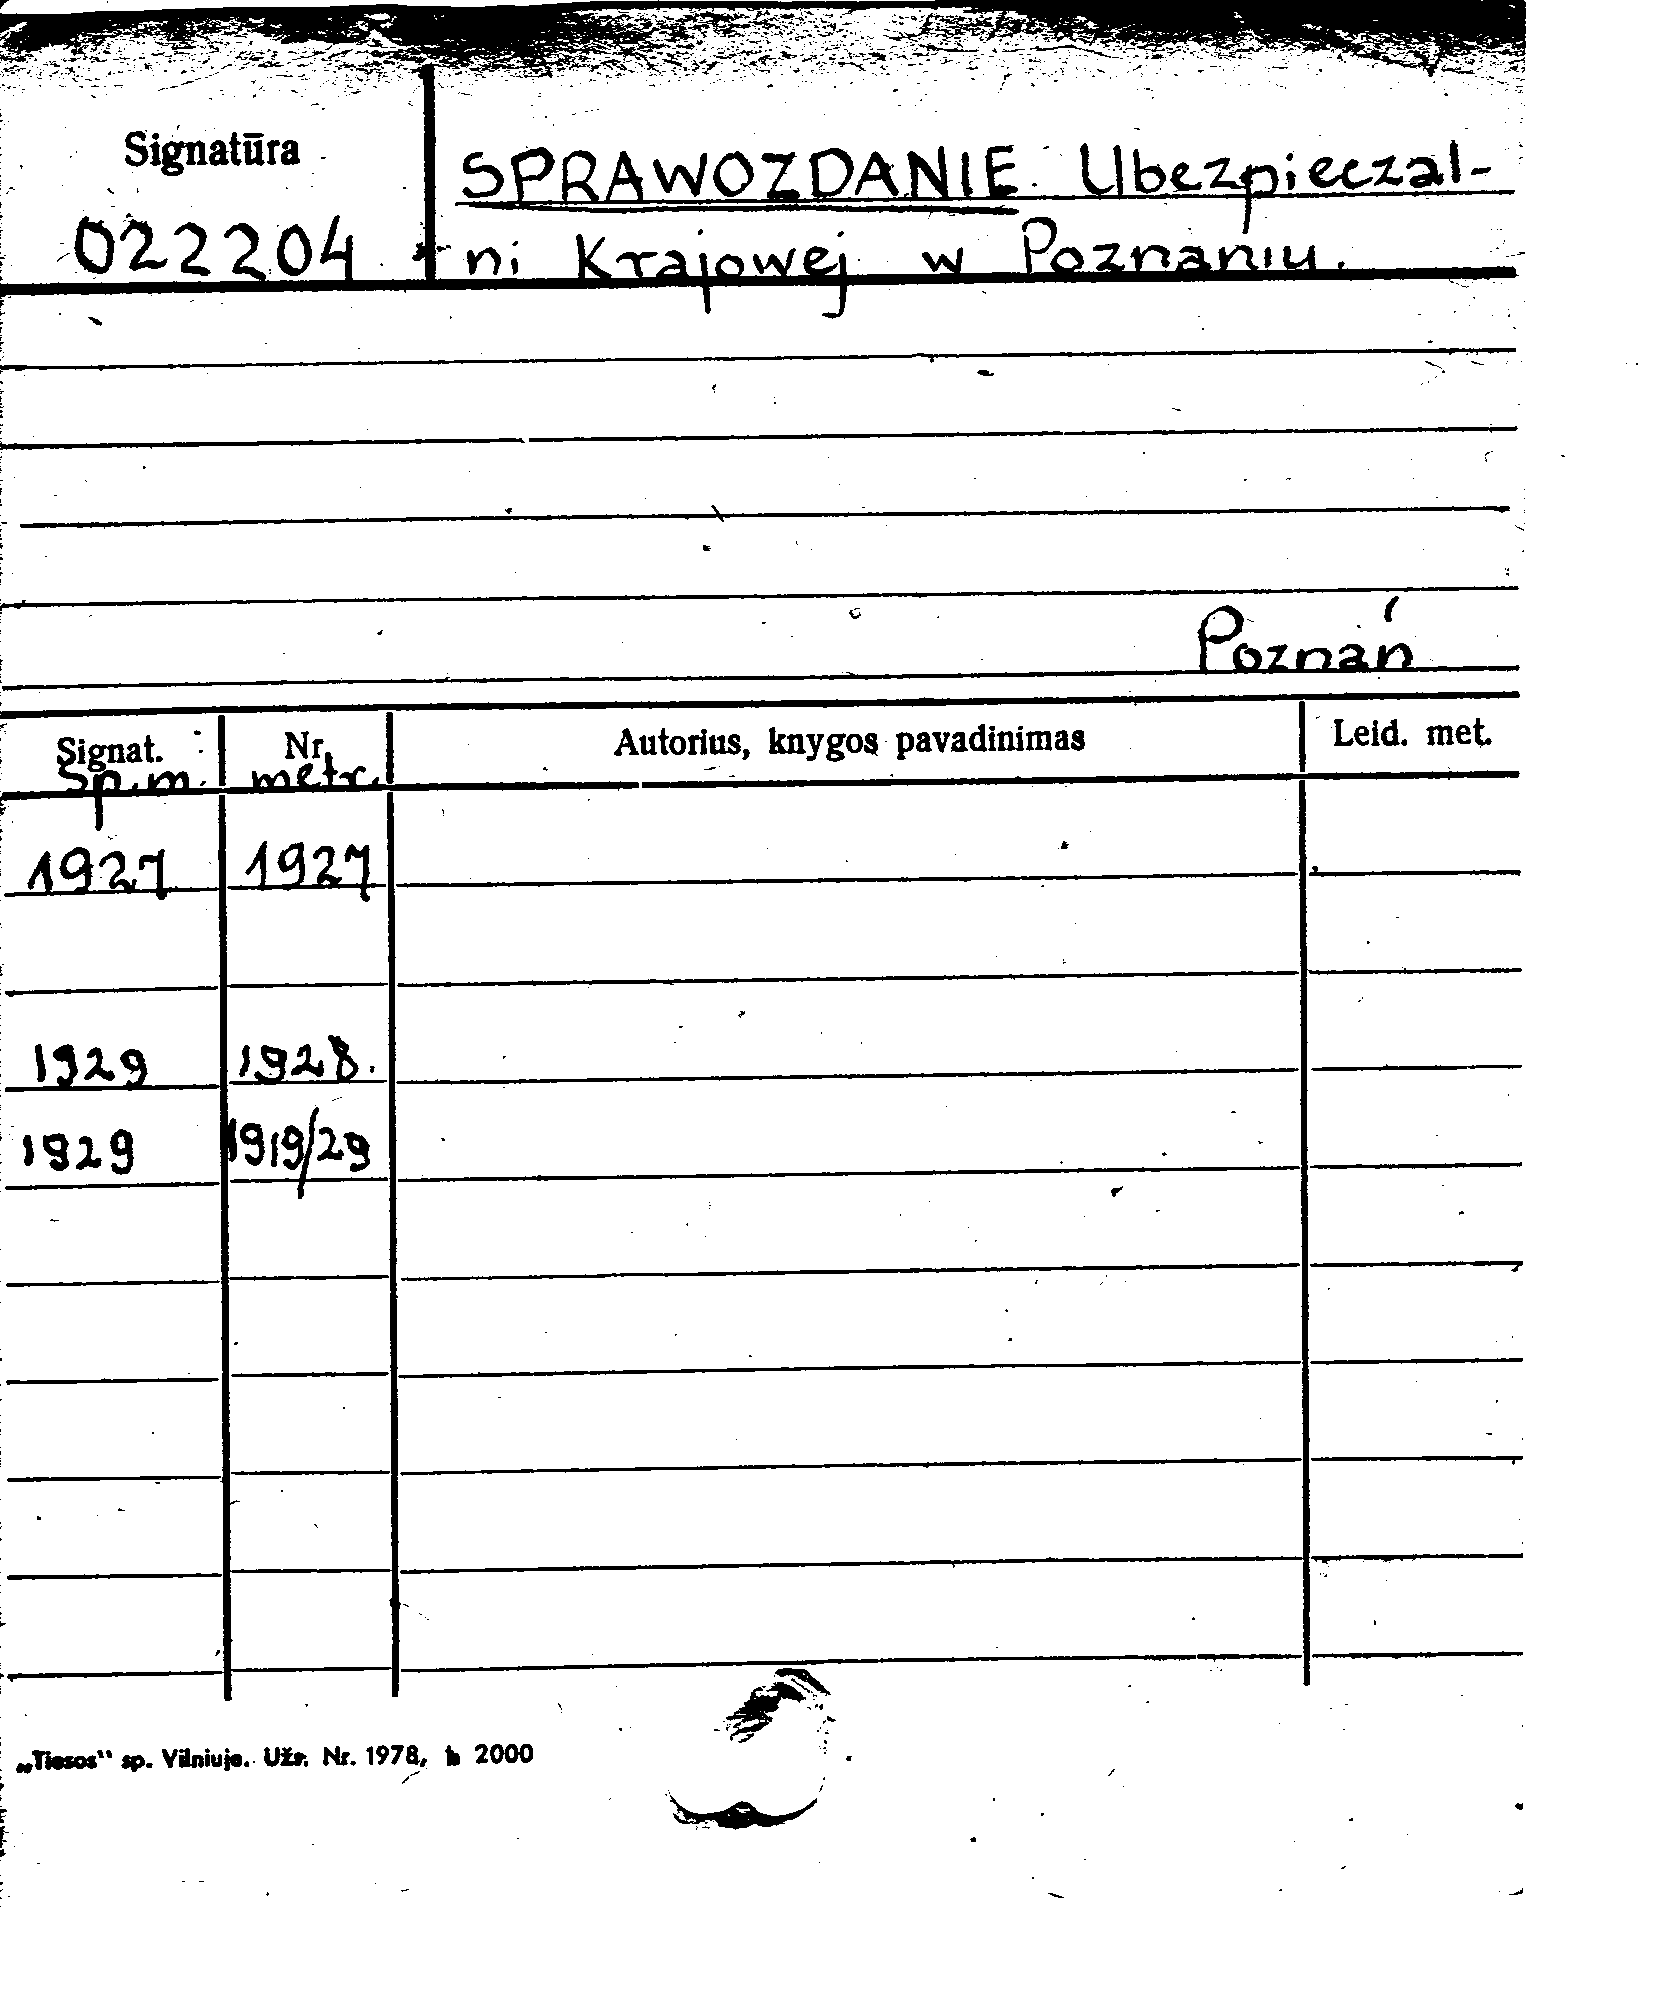 Signatūra
SPRAWOZDANIE Ubezpieczal-
022204
ni Krajowej w Poznaniu.
Poznań
Signat. Nr. Autorius, knygos pavadinimas Leid. met.
Sp.m. metr.
1927 1927
1929 1928.
1929 1919/29
„Tiesos" sp. Vilniuje. Užs. Nr. 1978, 2000